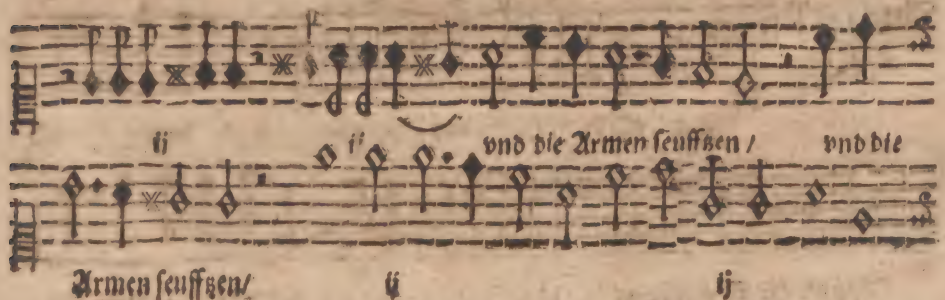 ij ij vnd die Armen seufftzen / vnd die
Armen seufftzen / ij ij